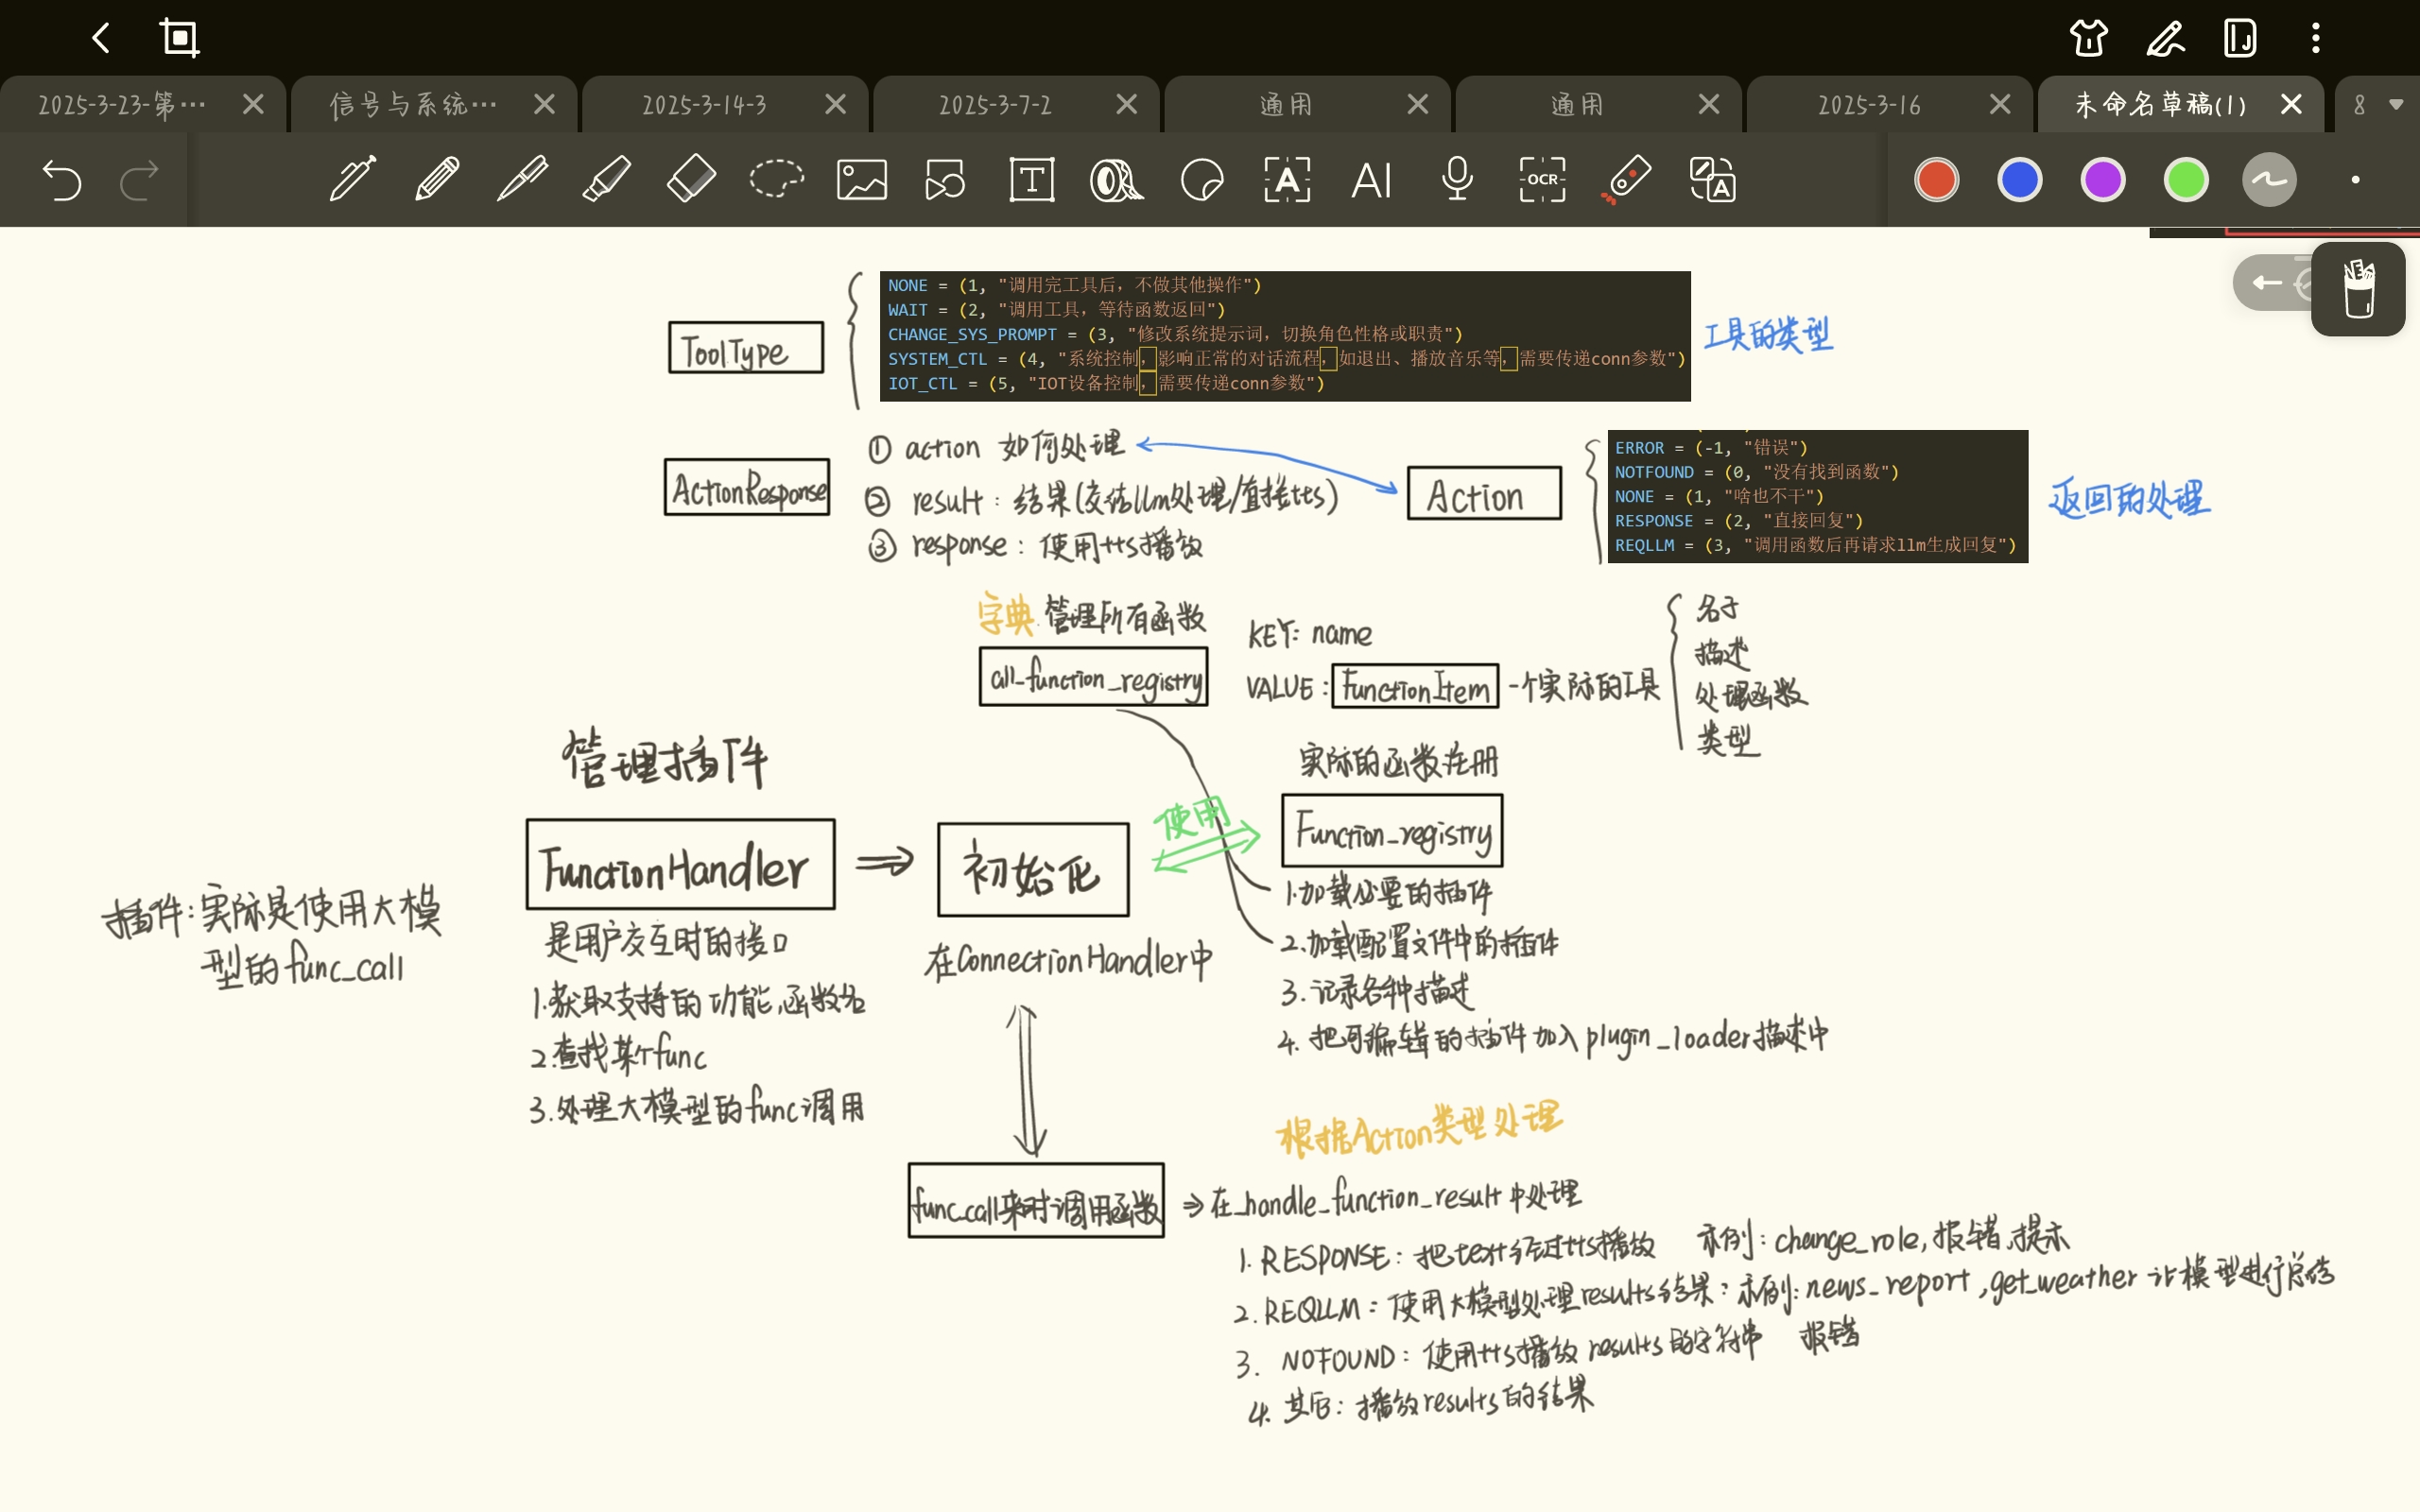 2025-3-23-第…
信号与系统…
2025-3-14-3
2025-3-7-2
通用
通用
2025-3-16
未命名草稿(1)
8
T
A
AI
OCR
A
ToolType
NONE = (1, "调用完工具后，不做其他操作")
WAIT = (2, "调用工具，等待函数返回")
CHANGE_SYS_PROMPT = (3, "修改系统提示词，切换角色性格或职责")
SYSTEM_CTL = (4, "系统控制，影响正常的对话流程，如退出、播放音乐等，需要传递conn参数")
IOT_CTL = (5, "IOT设备控制，需要传递conn参数")
工具的类型
ActionResponse
① action 如何处理
② result：结果(交给llm处理/直接tts)
③ response：使用tts播放
Action
ERROR = (-1, "错误")
NOTFOUND = (0, "没有找到函数")
NONE = (1, "啥也不干")
RESPONSE = (2, "直接回复")
REQLLM = (3, "调用函数后再请求llm生成回复")
返回的处理
字典 管理所有函数
all_function_registry
KEY: name
VALUE: FunctionItem 一个实际的工具
名字
描述
处理函数
类型
管理插件
FunctionHandler
是用户交互时的接口
1.获取支持的功能,函数名
2.查找某个func
3.处理大模型的func调用
插件:实际是使用大模
型的func_call
初始化
在ConnectionHandler中
使用
实际的函数注册
Function_registry
1.加载必要的插件
2.加载配置文件中的插件
3.记录各种描述
4.把可编辑的插件加入plugin_loader描述中
func_call来时调用函数
根据Action类型处理
⇒在_handle_function_result中处理
1. RESPONSE：把text经过tts播放 示例：change_role,报错,提示
2. REQLLM：使用大模型处理results结果：示例:news_report,get_weather 让模型进行总结
3. NOFOUND：使用tts播放results的字符串 报错
4. 其它：播放results的结果